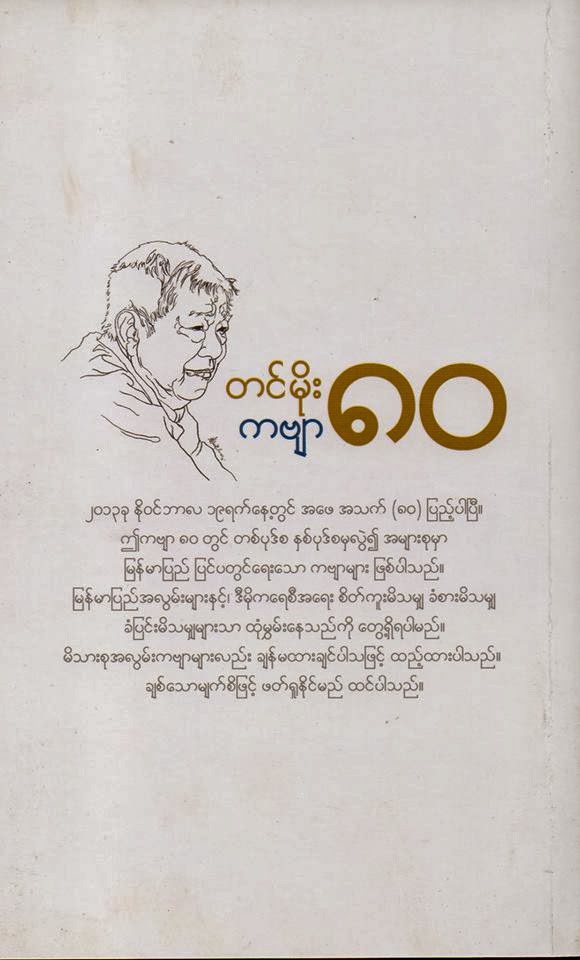 တင်မိုး
ကဗျာ ၈၀
၂၀၁၃ခု နိုဝင်ဘာလ ၁၉ရက်နေ့တွင် အဖေ အသက် (၈၀) ပြည့်ပါပြီ။
ဤကဗျာ ၈၀ တွင် တစ်ပုဒ်စ နှစ်ပုဒ်စမှလွဲ၍ အများစုမှာ
မြန်မာပြည် ပြင်ပတွင်ရေးသော ကဗျာများ ဖြစ်ပါသည်။
မြန်မာပြည်အလွမ်းများနှင့်၊ ဒီမိုကရေစီအရေး စိတ်ကူးမိသမျှ ခံစားမိသမျှ
ခံပြင်းမိသမျှများသာ ထုံမွှမ်းနေသည်ကို တွေ့ရှိရပါမည်။
မိသားစုအလွမ်းကဗျာများလည်း ချန်မထားချင်ပါသဖြင့် ထည့်ထားပါသည်။
ချစ်သောမျက်စိဖြင့် ဖတ်ရှုနိုင်မည် ထင်ပါသည်။